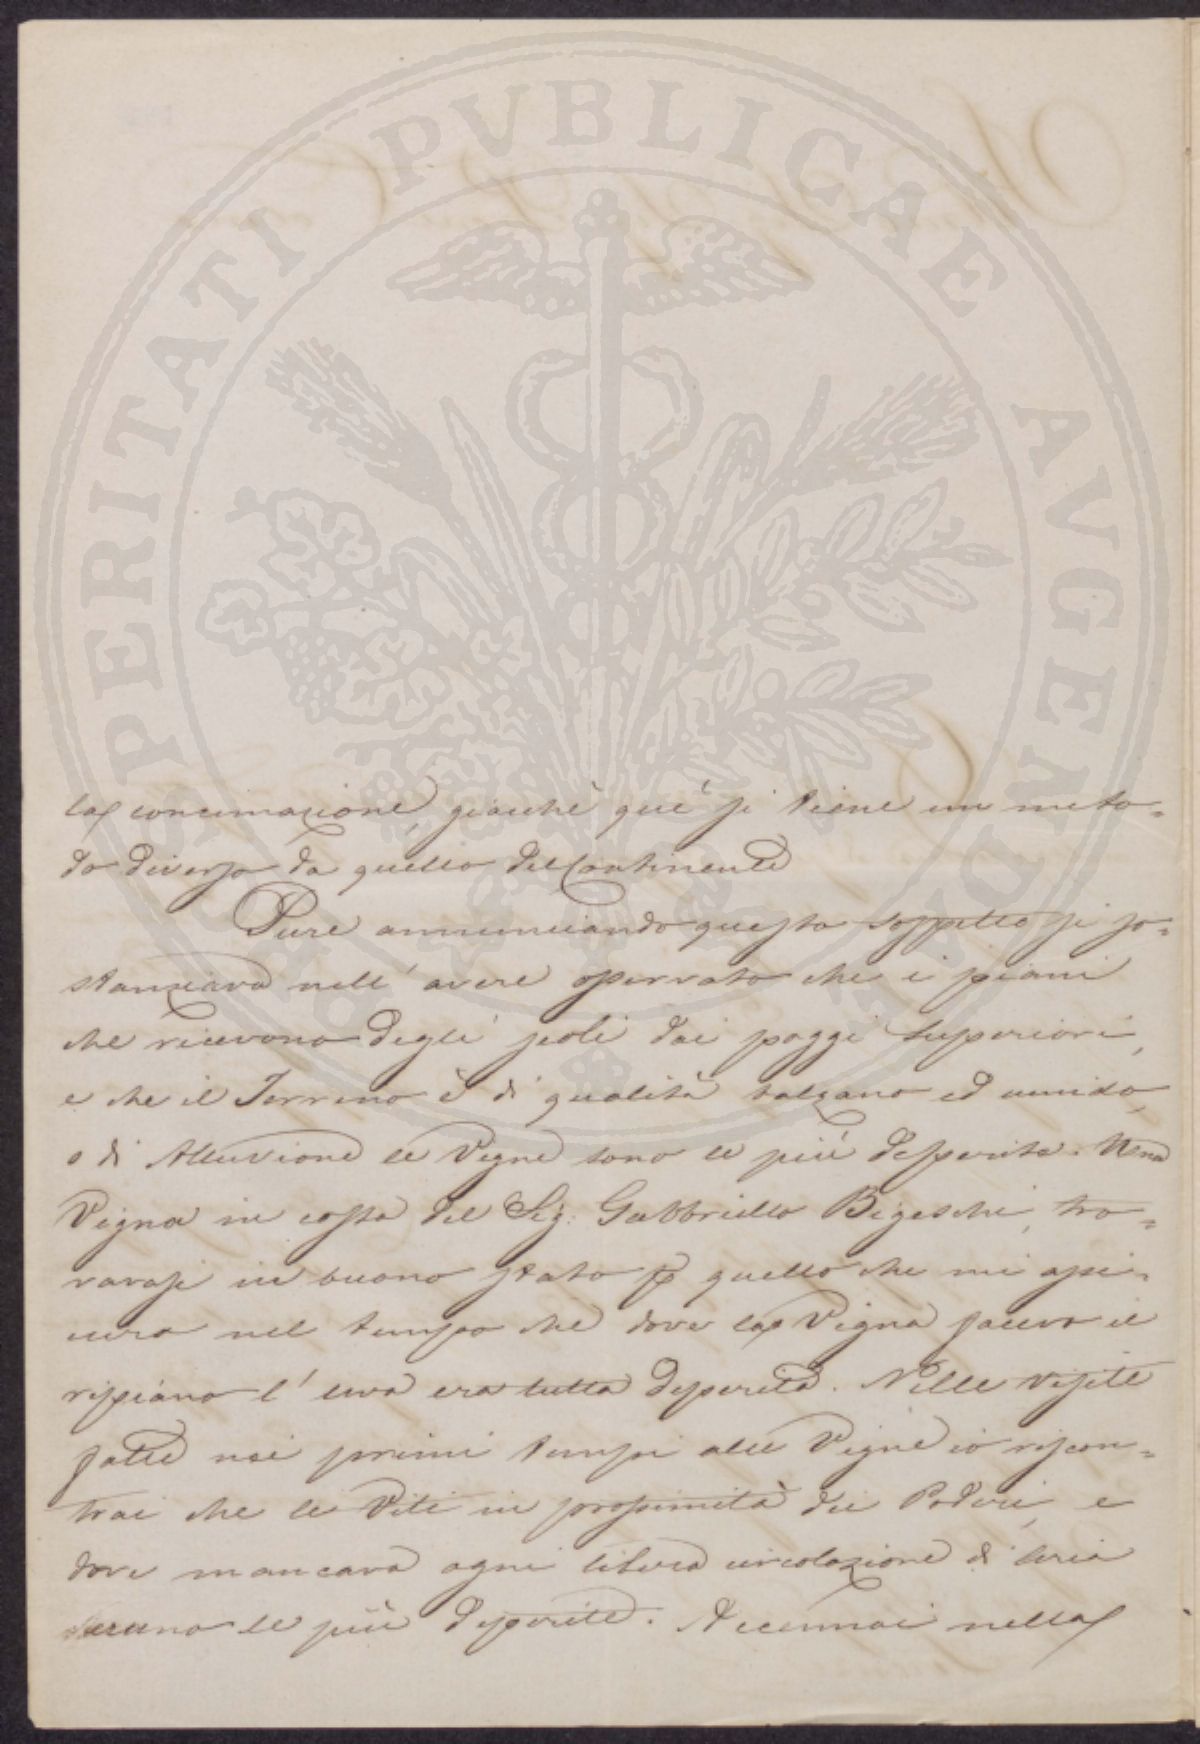 PROSPERITATI PVBLICAE AVGENDAE
la concimazione, giacchè qui si tiene un meto=
do diverso da quello del Continente
Pure annunciando questo soppetto si so=
stanziava nell' avere osservato che i piani
che ricevono degli scoli dai poggi superiori,
e che il Terreno è di qualità ed umido,
o di Alluvione le Vigne sono le più deperite. Una
Vigna in costa del Sig: Gabbriello Bigeschi, tro=
vavasi in buono stato p quello che mi assi=
curo nel tempo che dove la Vigna faceva il
ripiano l' uva era tutta deperita. Nelle visite
fatte nei primi tempi alle Vigne io riscon=
trai che le Viti in prossimità dei Poderi, e
dove mancava ogni libera circolazione d' aria
erano le più deperite. Accennai nella